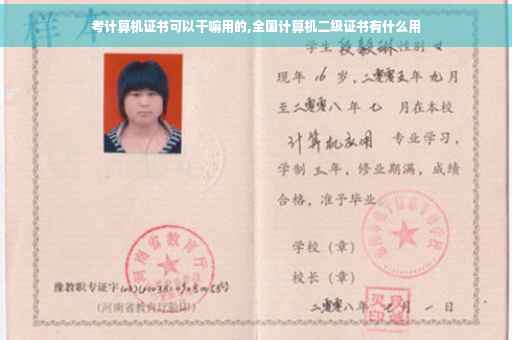 考计算机证书可以干嘛用的,全国计算机二级证书有什么用
样本
学生 段毅琳 性别 女
现年 16 岁,二零零五年 九月
至二零零八年 七 月在本校
计算机应用 专业学习,
学制 三年,修业期满,成绩
合格,准予毕业
学校(章)
校长(章)
二零零八年 七 月 一 日
河南省教育厅
豫教职专证字
(河南省教育厅验印)